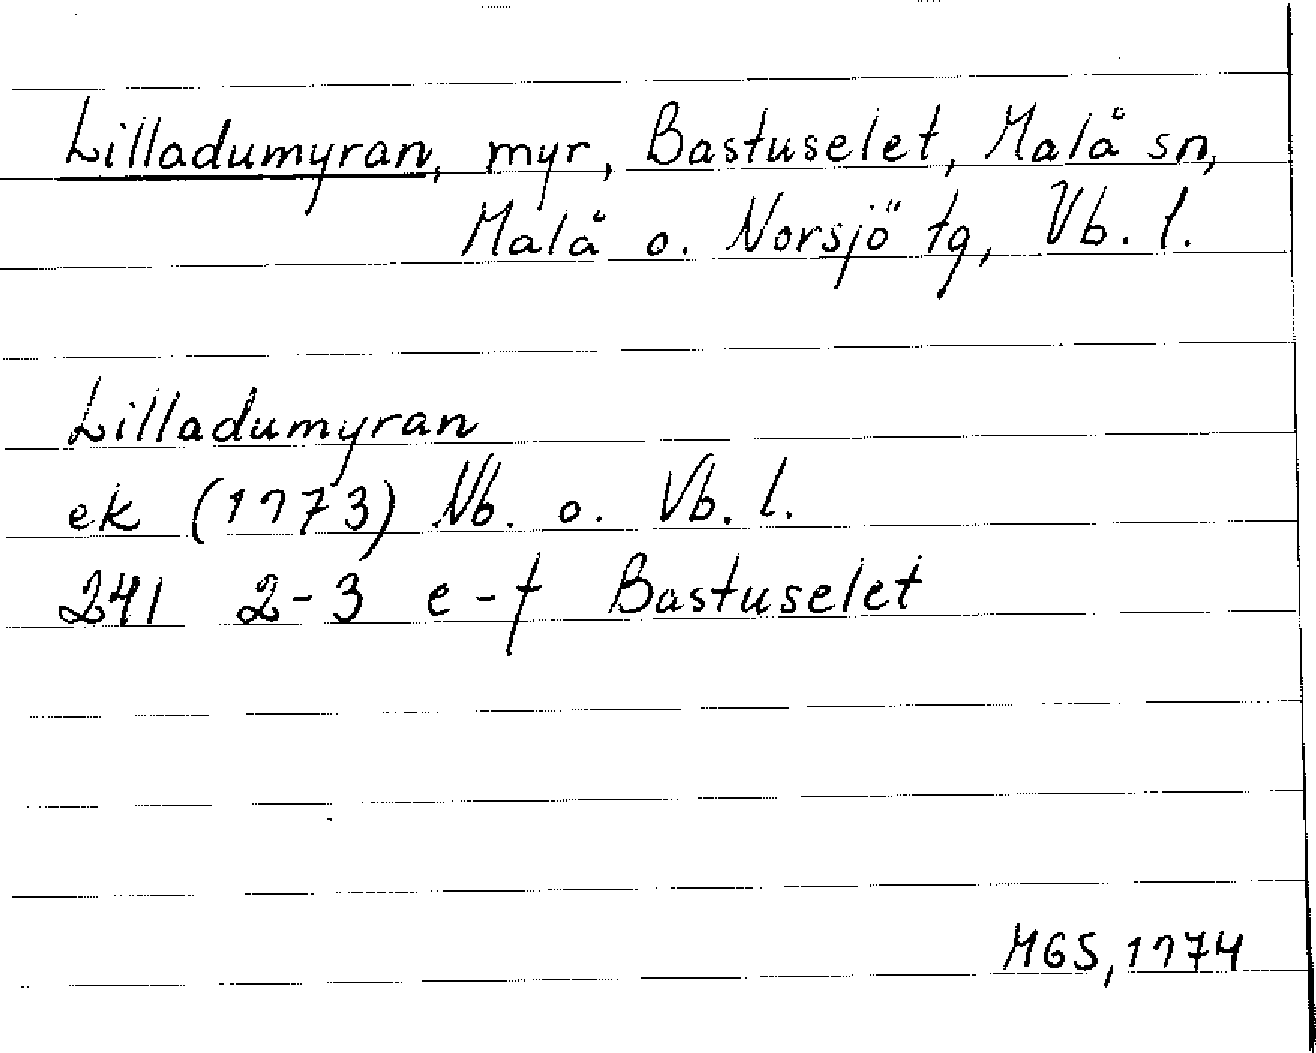 Lilladumyran, myr, Bastuselet, Malå sn,
Malå o. Norsjö tg, Vb. l.
Lilladumyran
ek (1973) Nb. o. Vb. l.
241 2-3 e-f Bastuselet
MGS, 1974